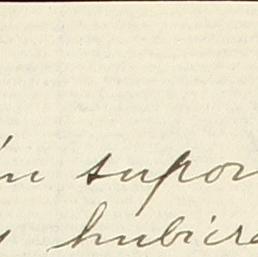 ín supon
hubiera